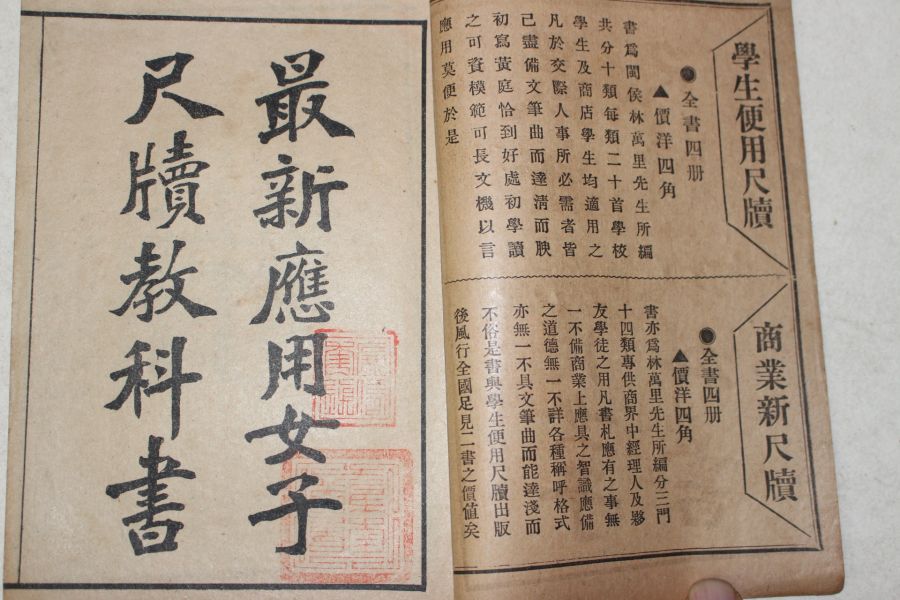 學生便用尺牘
●全書四册
▲價洋四角
書爲閩侯林萬里先生所編
共分十類每類二十首學校
學生及商店學生均適用之
凡於交際人事所必需者皆
己盡備文筆曲而達淸而腴
初寫黃庭恰到好處初學讀
之可資模範可長文機以言
應用莫便於是
商業新尺牘
●全書四册
▲價洋四角
書亦爲林萬里先生所編分三門
十四類專供商界中經理人及夥
友學徒之用凡書札應有之事無
一不備商業上應具之智識應備
之道德無一不詳各種稱呼格式
亦無一不具文筆曲而能達淺而
不俗是書與學生便用尺牘出版
後風行全國足見二書之價值矣
最新應用女子
尺牘教科書